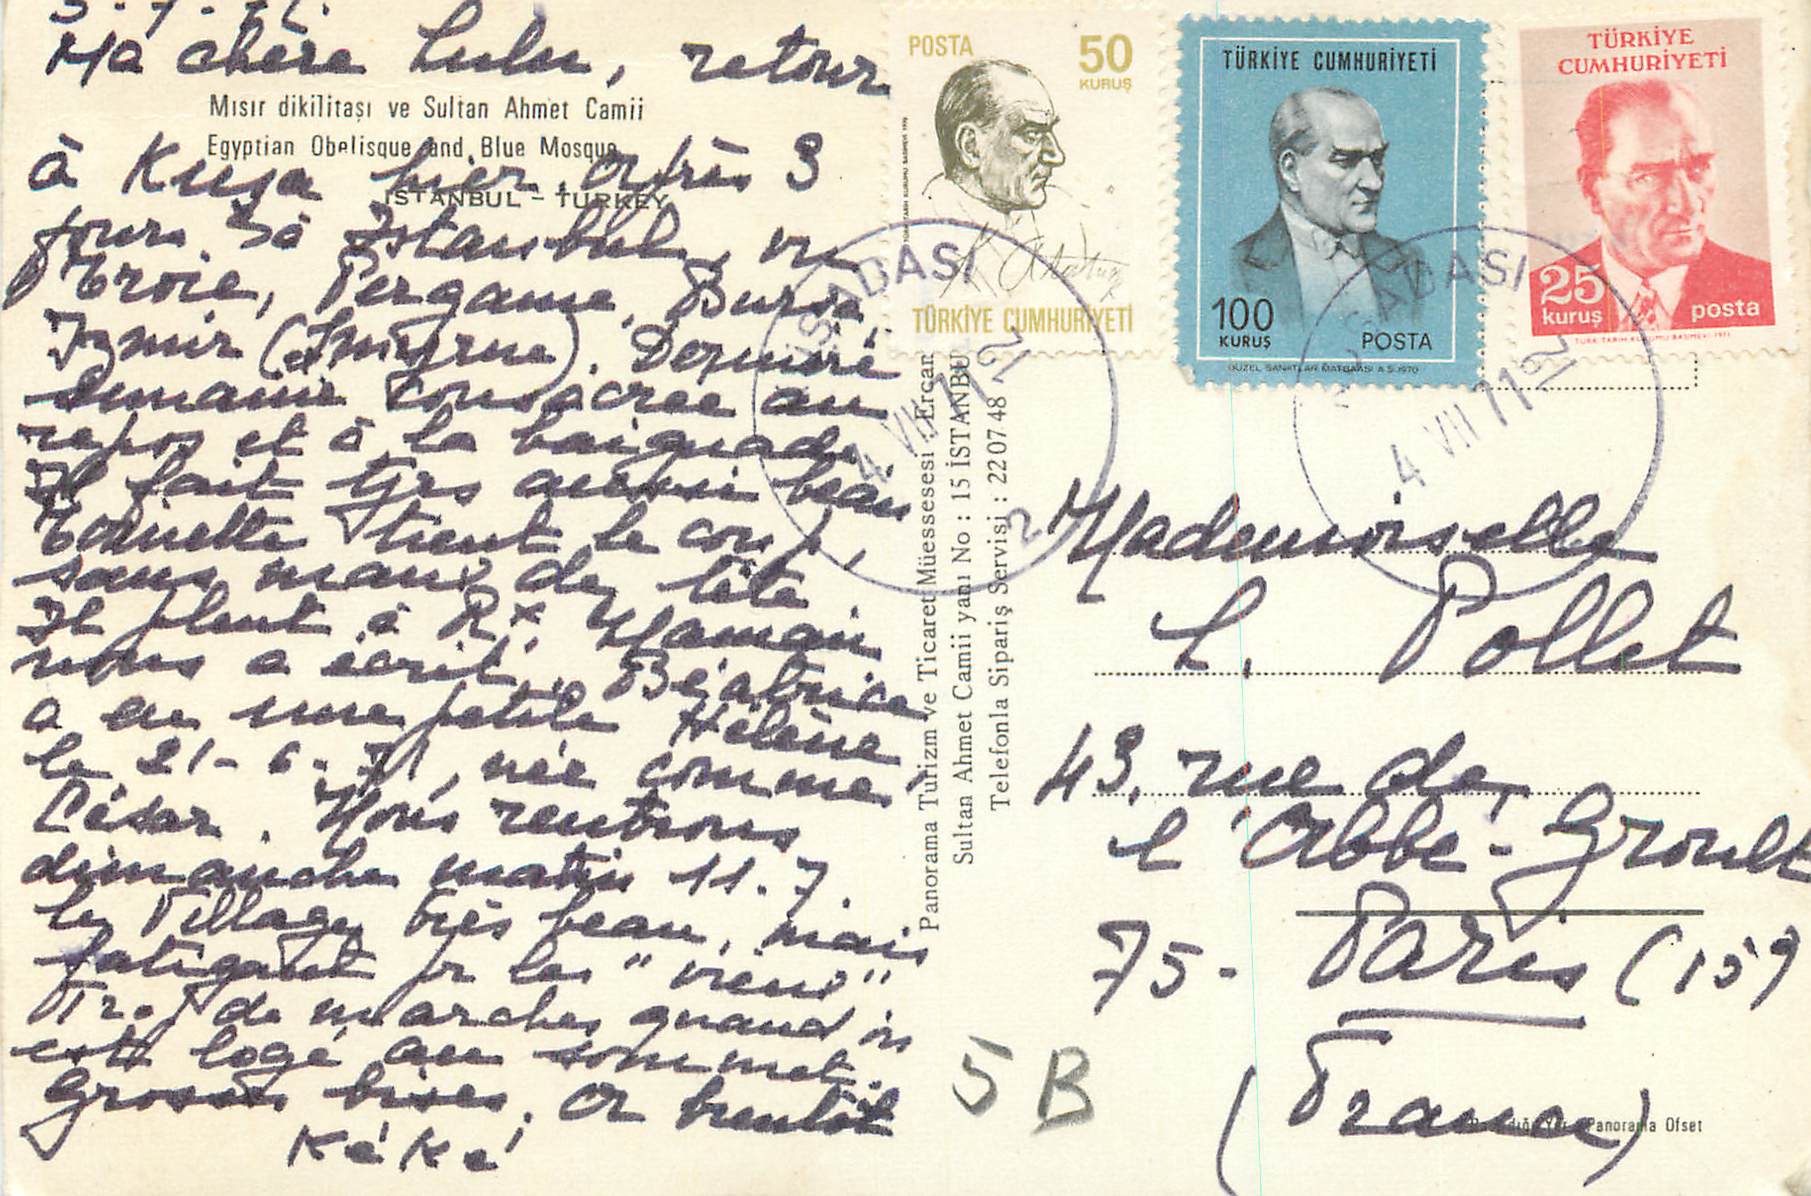 3-7-71.
Ma chère Lulu, retour
Mısır dikilitaşı ve Sultan Ahmet Camii
Egyptian Obelisque and Blue Mosque
İSTANBUL - TURKEY
à Kuşa hier, après 3
jours à Istanbul, vu
Troie, Pergame, Bursa,
Izmir (Smyrne). Dernière
semaine consacrée au
repos et à la baignade.
Il fait tjrs aussi beau
Toinette tient le coup,
sans maux de tête.
Il pleut à Rx. Maman
nous a écrit. Béatrice
a eu une petite Hélène
le 21-6-71, née comme
César. Nous rentrons
dimanche matin 11.7.
Le Village très beau, mais
fatigant pr les "vieux"
Tr. de marches quand on
est logé au sommet.
Grosses bises. A bientôt
KéKé
POSTA 50 KURUŞ
K. Atatürk
TÜRKİYE CUMHURİYETİ
TÜRKİYE CUMHURİYETİ
100 KURUŞ POSTA
GÜZEL SANATLAR MATBAASI A.Ş. 1970
TÜRKİYE
CUMHURİYETİ
25 kuruş posta
TÜRK TARİH KURUMU BASIMEVİ 1971
KUŞADASI
4 VII 71 12
2
KUŞADASI
4 VII 71 12
Panorama Turizm ve Ticaret Müessesesi Ercan
Sultan Ahmet Camii yanı No : 15 İSTANBUL
Telefonla Sipariş Servisi : 22 07 48
Mademoiselle
L. Pollet
43, rue de
l'Abbé-Groult
75- Paris (15e)
(France)
5 B
Panorama Ofset